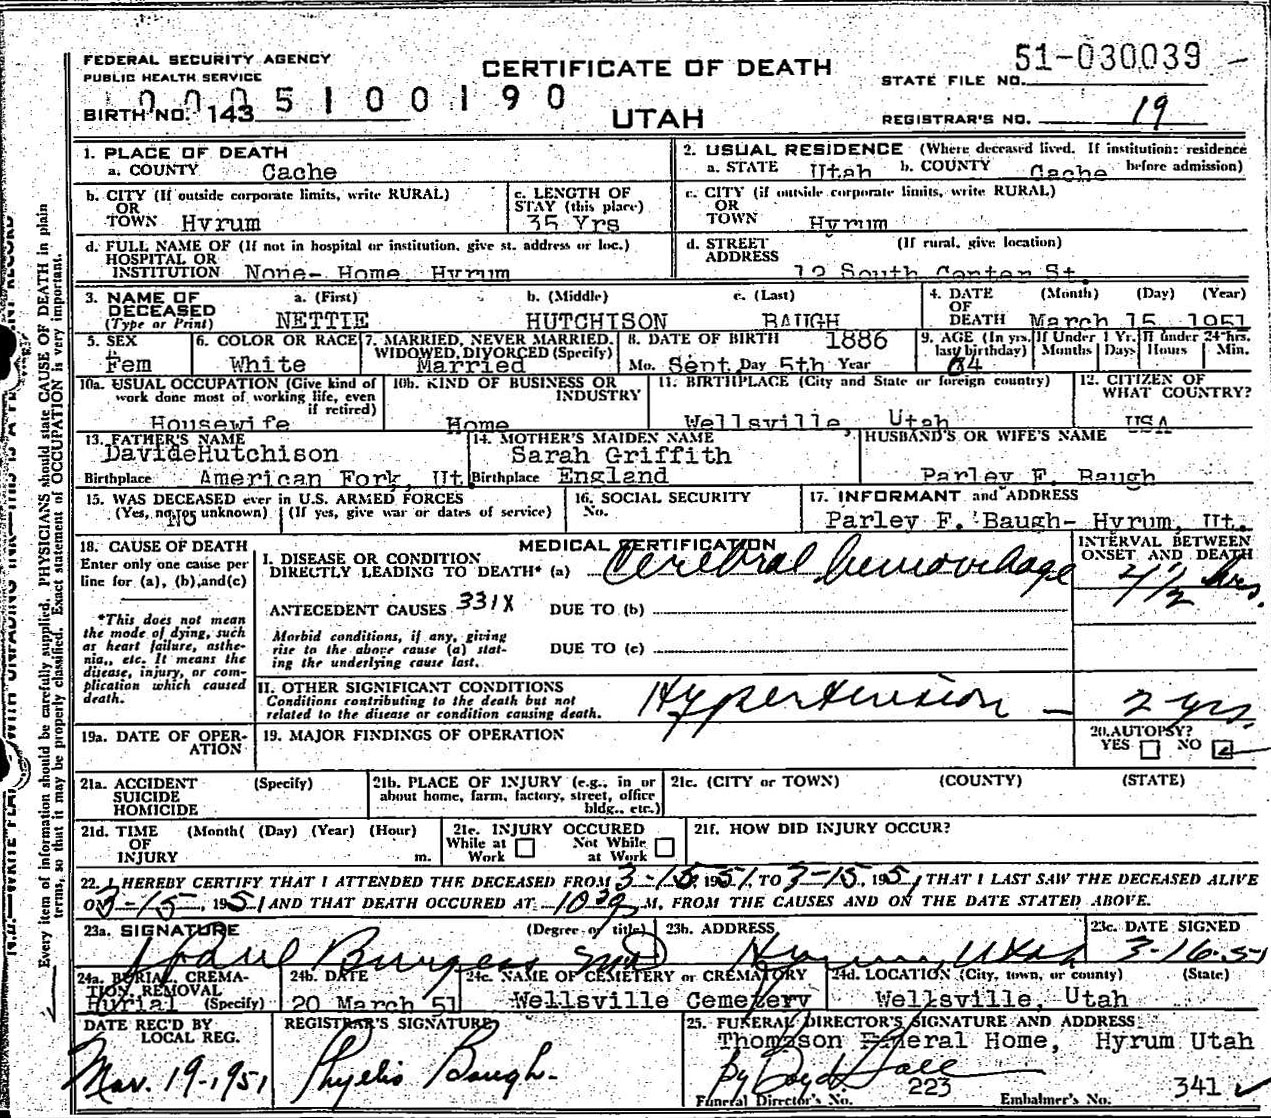 FEDERAL SECURITY AGENCY
PUBLIC HEALTH SERVICE
CERTIFICATE OF DEATH
STATE FILE NO. 51-030039
0005100190
BIRTH NO. 143
UTAH
REGISTRAR'S NO. 19
1. PLACE OF DEATH
a. COUNTY Cache
2. USUAL RESIDENCE (Where deceased lived. If institution: residence before admission)
a. STATE Utah b. COUNTY Cache
b. CITY (If outside corporate limits, write RURAL)
OR
TOWN Hyrum
c. LENGTH OF
STAY (this place)
35 Yrs
c. CITY (if outside corporate limits, write RURAL)
OR
TOWN Hyrum
d. FULL NAME OF (If not in hospital or institution, give st. address or loc.)
HOSPITAL OR
INSTITUTION None- Home Hyrum
d. STREET (If rural, give location)
ADDRESS
12 South Center St.
3. NAME OF DECEASED
(Type or Print)
a. (First) b. (Middle) c. (Last)
NETTIE HUTCHISON BAUGH
4. DATE OF DEATH (Month) (Day) (Year)
March 15 1951
5. SEX
Fem
6. COLOR OR RACE
White
7. MARRIED, NEVER MARRIED,
WIDOWED, DIVORCED (Specify)
Married
8. DATE OF BIRTH 1886
Mo. Sept Day 5th Year
9. AGE (In yrs. last birthday) If Under 1 Yr. If under 24 hrs.
Months Days Hours Min.
64
10a. USUAL OCCUPATION (Give kind of
work done most of working life, even
if retired)
Housewife
10b. KIND OF BUSINESS OR
INDUSTRY
Home
11. BIRTHPLACE (City and State or foreign country)
Wellsville, Utah
12. CITIZEN OF
WHAT COUNTRY?
USA
13. FATHER'S NAME
DavideHutchison
Birthplace American Fork, Ut.
14. MOTHER'S MAIDEN NAME
Sarah Griffith
Birthplace England
HUSBAND'S OR WIFE'S NAME
Parley F. Baugh
15. WAS DECEASED ever in U.S. ARMED FORCES
(Yes, no, or unknown) (If yes, give war or dates of service)
No
16. SOCIAL SECURITY
No.
17. INFORMANT and ADDRESS
Parley F. Baugh- Hyrum, Ut.
18. CAUSE OF DEATH
Enter only one cause per
line for (a), (b), and (c)
*This does not mean
the mode of dying, such
as heart failure, asthe-
nia., etc. It means the
disease, injury, or com-
plication which caused
death.
MEDICAL CERTIFICATION
INTERVAL BETWEEN
ONSET AND DEATH
I. DISEASE OR CONDITION
DIRECTLY LEADING TO DEATH* (a) Cerebral hemorrhage 4 1/2 hrs.
ANTECEDENT CAUSES 331X DUE TO (b)
Morbid conditions, if any, giving
rise to the above cause (a) stat-
ing the underlying cause last.
DUE TO (c)
II. OTHER SIGNIFICANT CONDITIONS
Conditions contributing to the death but not
related to the disease or condition causing death.
Hypertension - 2 yrs.
19a. DATE OF OPER-
ATION
19. MAJOR FINDINGS OF OPERATION
20. AUTOPSY?
YES NO
21a. ACCIDENT (Specify)
SUICIDE
HOMICIDE
21b. PLACE OF INJURY (e.g., in or
about home, farm, factory, street, office
bldg., etc.)
21c. (CITY or TOWN) (COUNTY) (STATE)
21d. TIME (Month( (Day) (Year) (Hour)
OF
INJURY m.
21e. INJURY OCCURED
While at Work Not While at Work
21f. HOW DID INJURY OCCUR?
22. I HEREBY CERTIFY THAT I ATTENDED THE DECEASED FROM 3-15, 1951, TO 3-15, 1951, THAT I LAST SAW THE DECEASED ALIVE
ON 3-15, 1951 AND THAT DEATH OCCURED AT 10 M, FROM THE CAUSES AND ON THE DATE STATED ABOVE.
23a. SIGNATURE (Degree or title)
Paul Burgess MD
23b. ADDRESS
Hyrum, Utah
23c. DATE SIGNED
3-16-51
24a. BURIAL, CREMA-
TION REMOVAL
(Specify)
Burial
24b. DATE
20 March 51
24c. NAME OF CEMETERY or CREMATORY
Wellsville Cemetery
24d. LOCATION (City, town, or county) (State)
Wellsville, Utah
DATE REC'D BY
LOCAL REG.
Mar. 19-1951
REGISTRAR'S SIGNATURE
Phyllis Baugh.
25. FUNERAL DIRECTOR'S SIGNATURE AND ADDRESS
Thompson Funeral Home, Hyrum Utah
By Boyd Hall
Funeral Director's No. 223
Embalmer's No. 341
Every item of information should be carefully supplied. PHYSICIANS should state CAUSE OF DEATH in plain
terms, so that it may be properly classified. Exact statement of OCCUPATION is very important.